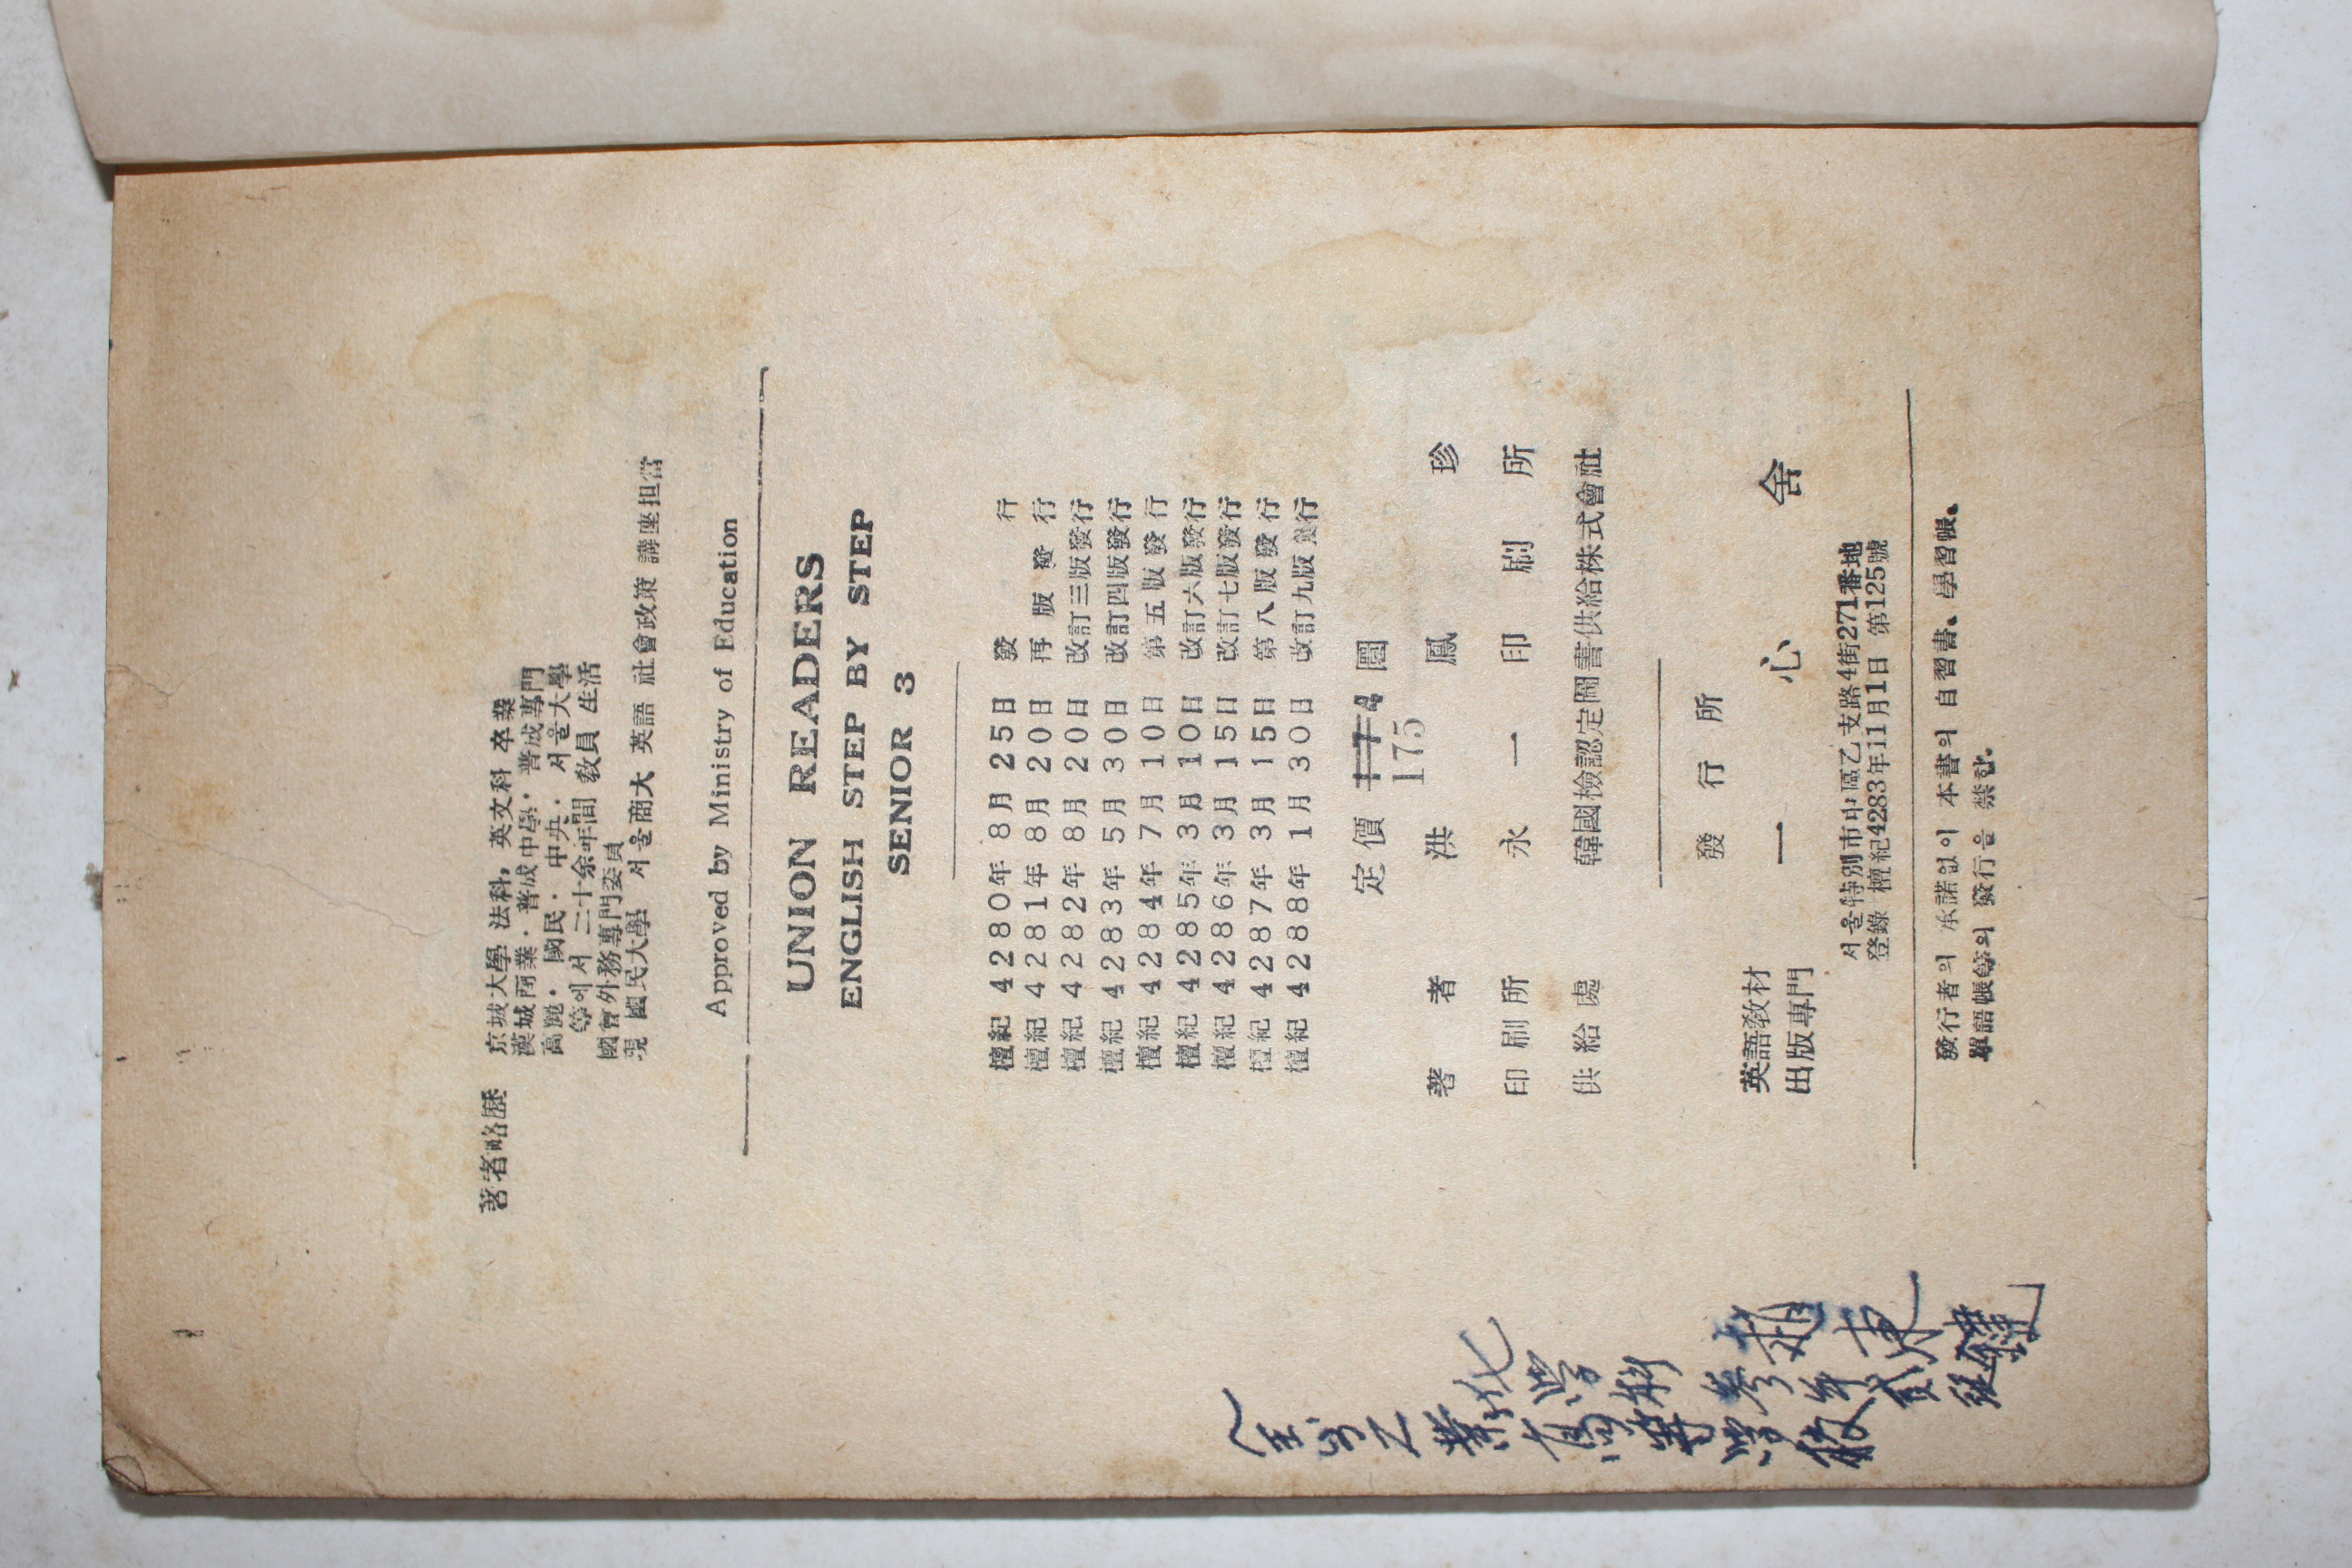 著者略歷
京城大學 法科, 英文科 卒業
漢城商業・普成中學・普成專門
高麗・國民・中央・서울大學
等에서 二十余年間 敎員生活
國會外務專門委員
現 國民大學 서울商大 英語 社會政策 講座担當
Approved by Ministry of Education
UNION READERS
ENGLISH STEP BY STEP
SENIOR 3
檀紀 4280年 8月 25日 發行
檀紀 4281年 8月 20日 再版發行
檀紀 4282年 8月 20日 改訂三版發行
檀紀 4283年 5月 30日 改訂四版發行
檀紀 4284年 7月 10日 第五版發行
檀紀 4285年 3月 10日 改訂六版發行
檀紀 4286年 3月 15日 改訂七版發行
檀紀 4287年 3月 15日 第八版發行
檀紀 4288年 1月 30日 改訂九版發行
定價 174 圜
175
著者 洪鳳珍
印刷所 永一印刷所
供給處 韓國檢認定圖書供給株式會社
發行所
英語敎材
出版專門
一心舍
서울特別市中區乙支路4街271番地
登錄 檀紀4283年11月1日 第125號
發行者의 承諾없이 本書의 自習書、學習帳、
單語帳等의 發行을 禁함.
工業高等學校
化學科 參年貳班
趙東